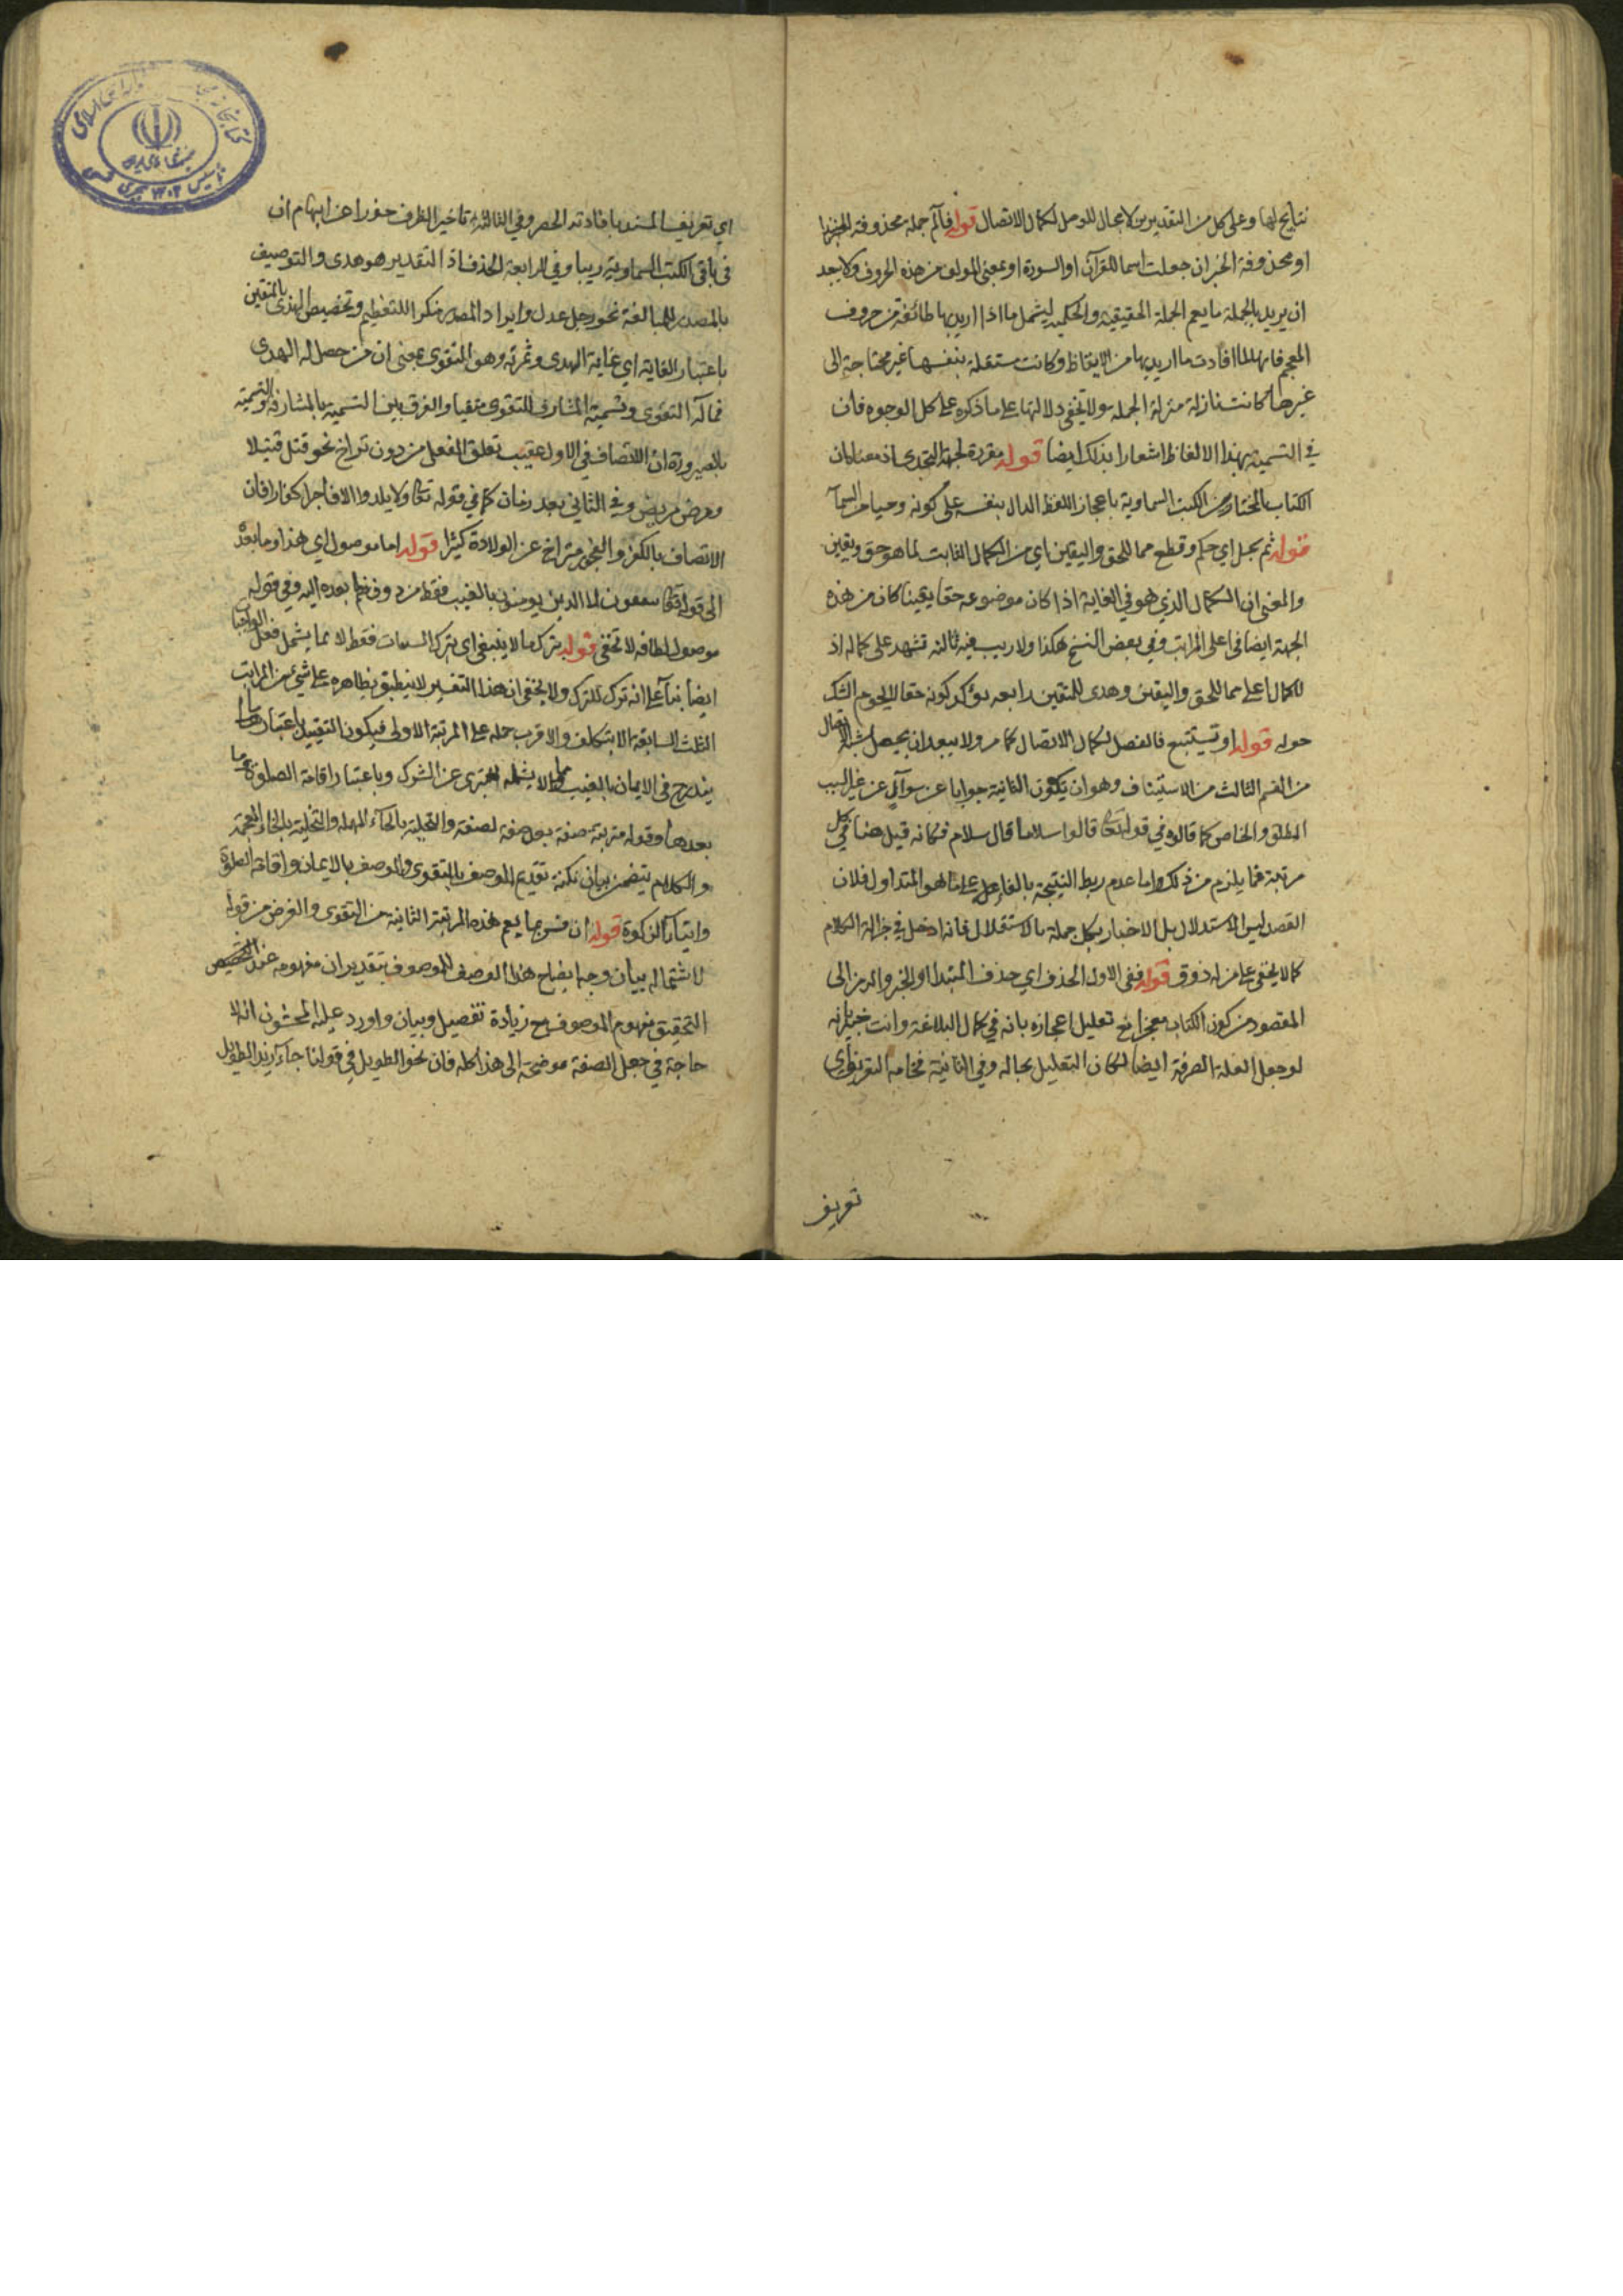 نتايج لها وعلى كل من التقديرين لا مجال للوصل لكمال الاتصال قوله فالم جملة محذوفة
او محذوفة الخبر ان جعلت اسما للقرآن او السورة او بمعنى المولف من هذه الحروف ولا يبعد
ان يريد بالجملة ما يعم الجملة الحقيقية والحكمية ليشمل ما اذا اريد بها طائفة من حروف
المعجم فانها لما افادت ما اريد بها من الايقاظ وكانت مستقلة بنفسها غير محتاجة الى
غيرها كانت نازلة منزلة الجملة ولا تخفى دلالتها على ما ذكره على كل الوجوه فان
في التسمية بهذا الالفاظ اشعارا بذلك ايضا قوله مقررة لجهة التحدي اذ معناه ان
الكتاب المختار من الكتب السماوية باعجاز اللفظ الدال بنفسه على كونه وحيا من السمآ
قوله ثم بجل اي حكم وقطع مما للحق واليقين اي من الكمال الثابت لما هو حق ويقين
والمعنى ان الكمال الذي هو في الغاية اذا كان موضوعه حقا يقينا كان من هذه
الجهة ايضا في اعلى المراتب وفي بعض النسخ هكذا ولا ريب فيه ثالثة تشهد على كماله اذ
لا كمال اعلى مما للحق واليقين وهدى للمتقين رابعة تؤكد كونه حقا لا يحوم الشك
حوله قوله او تستتبع فالفصل لكمال الاتصال كما مر ولا يبعد ان يجعل
من القسم الثالث من الاستيناف وهو ان يكون الثانية جوابا عن سوآل عن غير السبب
المطلق والخاص كما قالوه في قوله تعالى قالوا سلاما قال سلام فكانه قيل هنا في كل
مرتبة فما يلزم من ذلك واما عدم ربط النتيجة بالفا على ما هو المتداول فلان
القصد ليس الاستدلال بل الاخبار بكل جملة بالاستقلال فانه ادخل في جزالة الكلام
كما لا يخفى على من له ذوق قوله ففي الاولى الحذف اي حذف المبتدا او الخبر والرمز الى
المقصود من كون الكتاب معجزا مع تعليل اعجازه بانه في كمال البلاغة وانت خبير بانه
لو جعل العلة الصرفة ايضا لكان التعليل بحاله وفي الثانية فخامة التعريف اي
تعريف
اي تعريف المسند بافادته الحصر وفي الثالثة تاخير الظرف حذرا عن ايهام ان
في باقي الكتب السماوية ريبا وفي الرابعة الحذف اذ التقدير هو هدى والتوصيف
بالمصدر للمبالغة نحو رجل عدل وايراد المصدر منكرا للتعظيم وتخصيص الهدى بالمتقين
باعتبار الغاية اي غاية الهدى وثمرته وهو التقوى بمعنى ان من حصل له الهدى
فمآله التقوى وتسمية المشارف للتقوى متقيا والفرق بين التسمية بالمشارفة والتسمية
بالصيرورة ان الاتصاف في الاول عقيب تعلق الفعل من دون تراخ نحو قتل قتيلا
ومرض مريض وفي الثاني بعد زمان كما في قوله تعالى ولا يلدوا الا فاجرا كفارا فان
الاتصاف بالكفر والفجور متراخ عن الولادة كثيرا قوله اما موصول اي هذا وما بعده
الى قوله تعالى ينفقون لا الذين يومنون بالغيب فقط من دون ضم ما بعده اليه وفي قوله
موصول لطافة لا تخفى قوله بترك ما لا ينبغي اي بترك السيئات فقط لا بما يشمل فعل الواجبات
ايضا بنآ على انه ترك للترك ولا يخفى ان هذا التفسير لا ينطبق بظاهره على شيء من المراتب
الثلث السابقة الا بتكلف والاقرب حمله على المرتبة الاولى فيكون التقييد باعتبار
يندرج في الايمان بالغيب مما لا يشمله التبري عن الشرك وباعتبار اقامة الصلوة وما
بعدها وقوله مترتبة صفة بعد صفة لصفة والتحلية بالحآء المهملة والتخلية بالخاء المعجمة
والكلام يتضمن بيان نكتة تقديم الوصف بالتقوى على الوصف بالايمان واقامة الصلوة
وايتآء الزكوة قوله ان فسر بما يعم هذه المرتبة الثانية من التقوى والغرض من قوله
لاشتماله بيان وجه ايضاح هذا الوصف للموصوف بتقدير ان مفهومه عند
التحقيق مفهوم الموصوف مع زيادة تفصيل وبيان واورد عليه المحشون انه لا
حاجة في جعل الصفة موضحة الى هذا كله فان نحو الطويل في قولنا جآء زيد الطويل